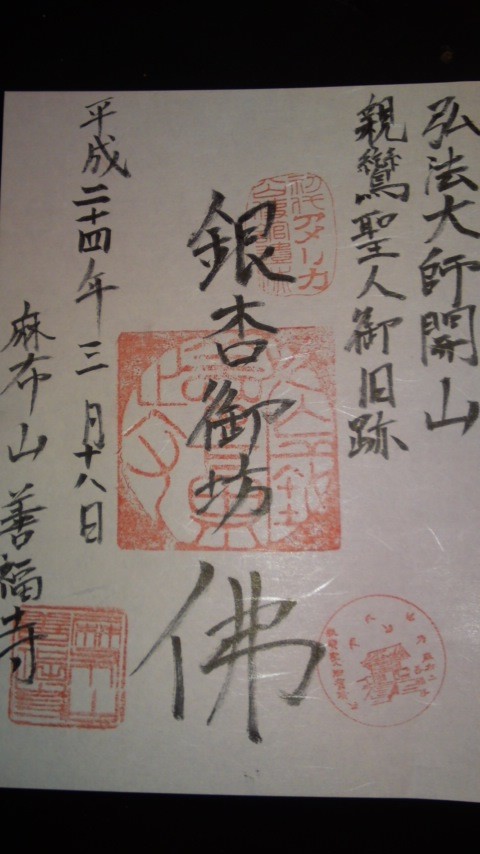 弘法大師開山
親鸞聖人御旧跡
初代アメリカ
公使館遺跡
銀杏御坊
佛
平成二十四年三月十八日
麻布山善福寺